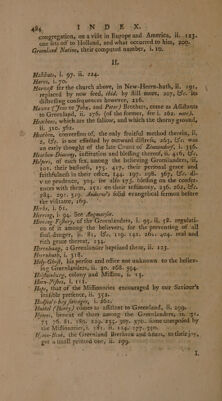 484 INDEX.
congregation, on a visit in Europe and America, ii. 123.
one sets off to Holland, and what occurred to him, 200.
Greenland Nation, their computed number, i. 10.
H.
Halibuts, i. 97. ii. 224.
Hares, i. 70.
Harnest for the church above, in New-Herrn-huth, ii. 191,
replaced by new seed, ibid. by still more, 207, &c. its
distressing consequences however, 216.
Haven (Jens to John, and Peter) Brothers, came as Assistants
to Greenland, ii. 278. (of the former, see i. 262 note).
Heathen, which are the fallow, and which the thorny ground,
ii. 310, 362.
Heathen, conversion of, the only fruitful method therein, ii.
2, &c. is not effected by outward efforts, 263, &c. was
an early thought of the late Count of Zinzendorf, i. 356.
Heathen Dancing, institution and blessing thereof, ii. 416, &c.
Helpers, of each sex, among the believing Greenlanders, ii.
401. their business, 75, 417. their personal grace and
faithfulness in their office, 144. 197. 198. 367, &c. di-
vine prudence, 304. see also 175. blessing on the confer-
ences with them, 251. on their testimony, 236. 262, &c.
284. 291. 319. Andrew's solid evangelical sermon before
the visitant, 169.
Herbs, i. 61.
Herring, i. 94. See Angmarset.
Herring Fishery, of the Greenlanders, i. 95. ii. 58. regulati-
on of it among the believers, for the preventing of all
soul-danger, ii. 81, &c. 119. 141. 261. 404. real and
rich grace thereat, 234.
Herrnhaag, a Greenlander baptised there, ii. 123.
Herrnhuth, i. 318.
Holy-Ghost, his person and office not unknown to the believ-
ing Greenlanders, ii. 30. 268. 394.
Holsteinburg, colony and Mission, i. 15.
Horn-Fishes, i. 112.
Hope, that of the Missionaries encouraged by our Saviour's
sensible presence, ii. 352.
Hudson's-bay savages, i. 262.
Huckel (Henry) comes to assistant to Greenland, ii. 299.
Hymns, benefit of them among the Greenlanders, ii. 31.
73. 76. 81. 189. 229. 255. 307. 370. some composed by
the Missionaries, i. 181. ii. 114. 277. 350.
Hymn-Book, the Greenland Brethren and sisters, to their joy,
get a small printed one, ii. 299.
I.